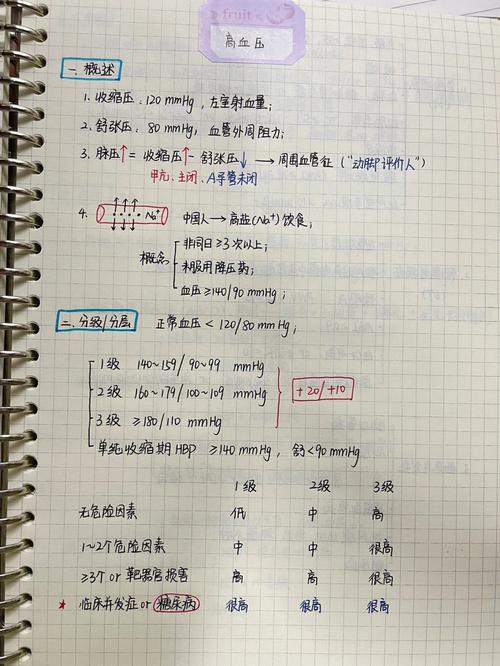 fruit
高血压
一. 概述
1. 收缩压: 120 mmHg, 左室射血量;
2. 舒张压: 80 mmHg, 血管外周阻力;
3. 脉压↑ = 收缩压↑ - 舒张压↓ → 周围血管征 ("动脚评价人")
甲亢、主闭、A导管未闭
4. Na⁺ 中国人→高盐(Na⁺)饮食;
概念
非同日≥3次以上;
未服用降压药;
血压≥140/90 mmHg;
二. 分级/分层 正常血压 < 120/80 mmHg;
1级 140~159/90~99 mmHg
2级 160~179/100~109 mmHg
+20/+10
3级 ≥180/110 mmHg
单纯收缩期HBP ≥140 mmHg, 舒<90 mmHg
1级 2级 3级
无危险因素 低 中 高
1~2个危险因素 中 中 很高
≥3个 or 靶器官损害 高 高 很高
★ 临床并发症 or 糖尿病 很高 很高 很高